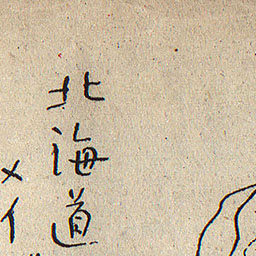 北海道
メイ